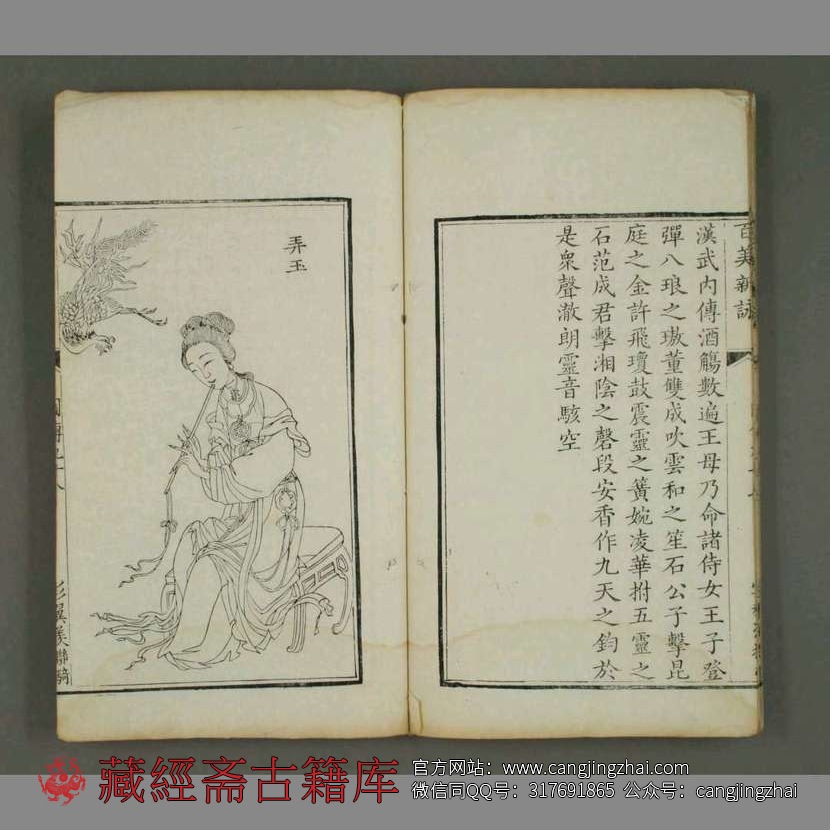 百美新詠
漢武內傳酒觴數遍王母乃命諸侍女王子登
彈八琅之璈董雙成吹雲和之笙石公子擊昆
庭之金許飛瓊鼓震靈之簧婉凌華拊五靈之
石范成君擊湘陰之磬段安香作九天之鈞於
是衆聲澈朗靈音駭空
弄玉
藏經斋古籍库
官方网站：www.cangjingzhai.com
微信同QQ号：317691865 公众号：cangjingzhai